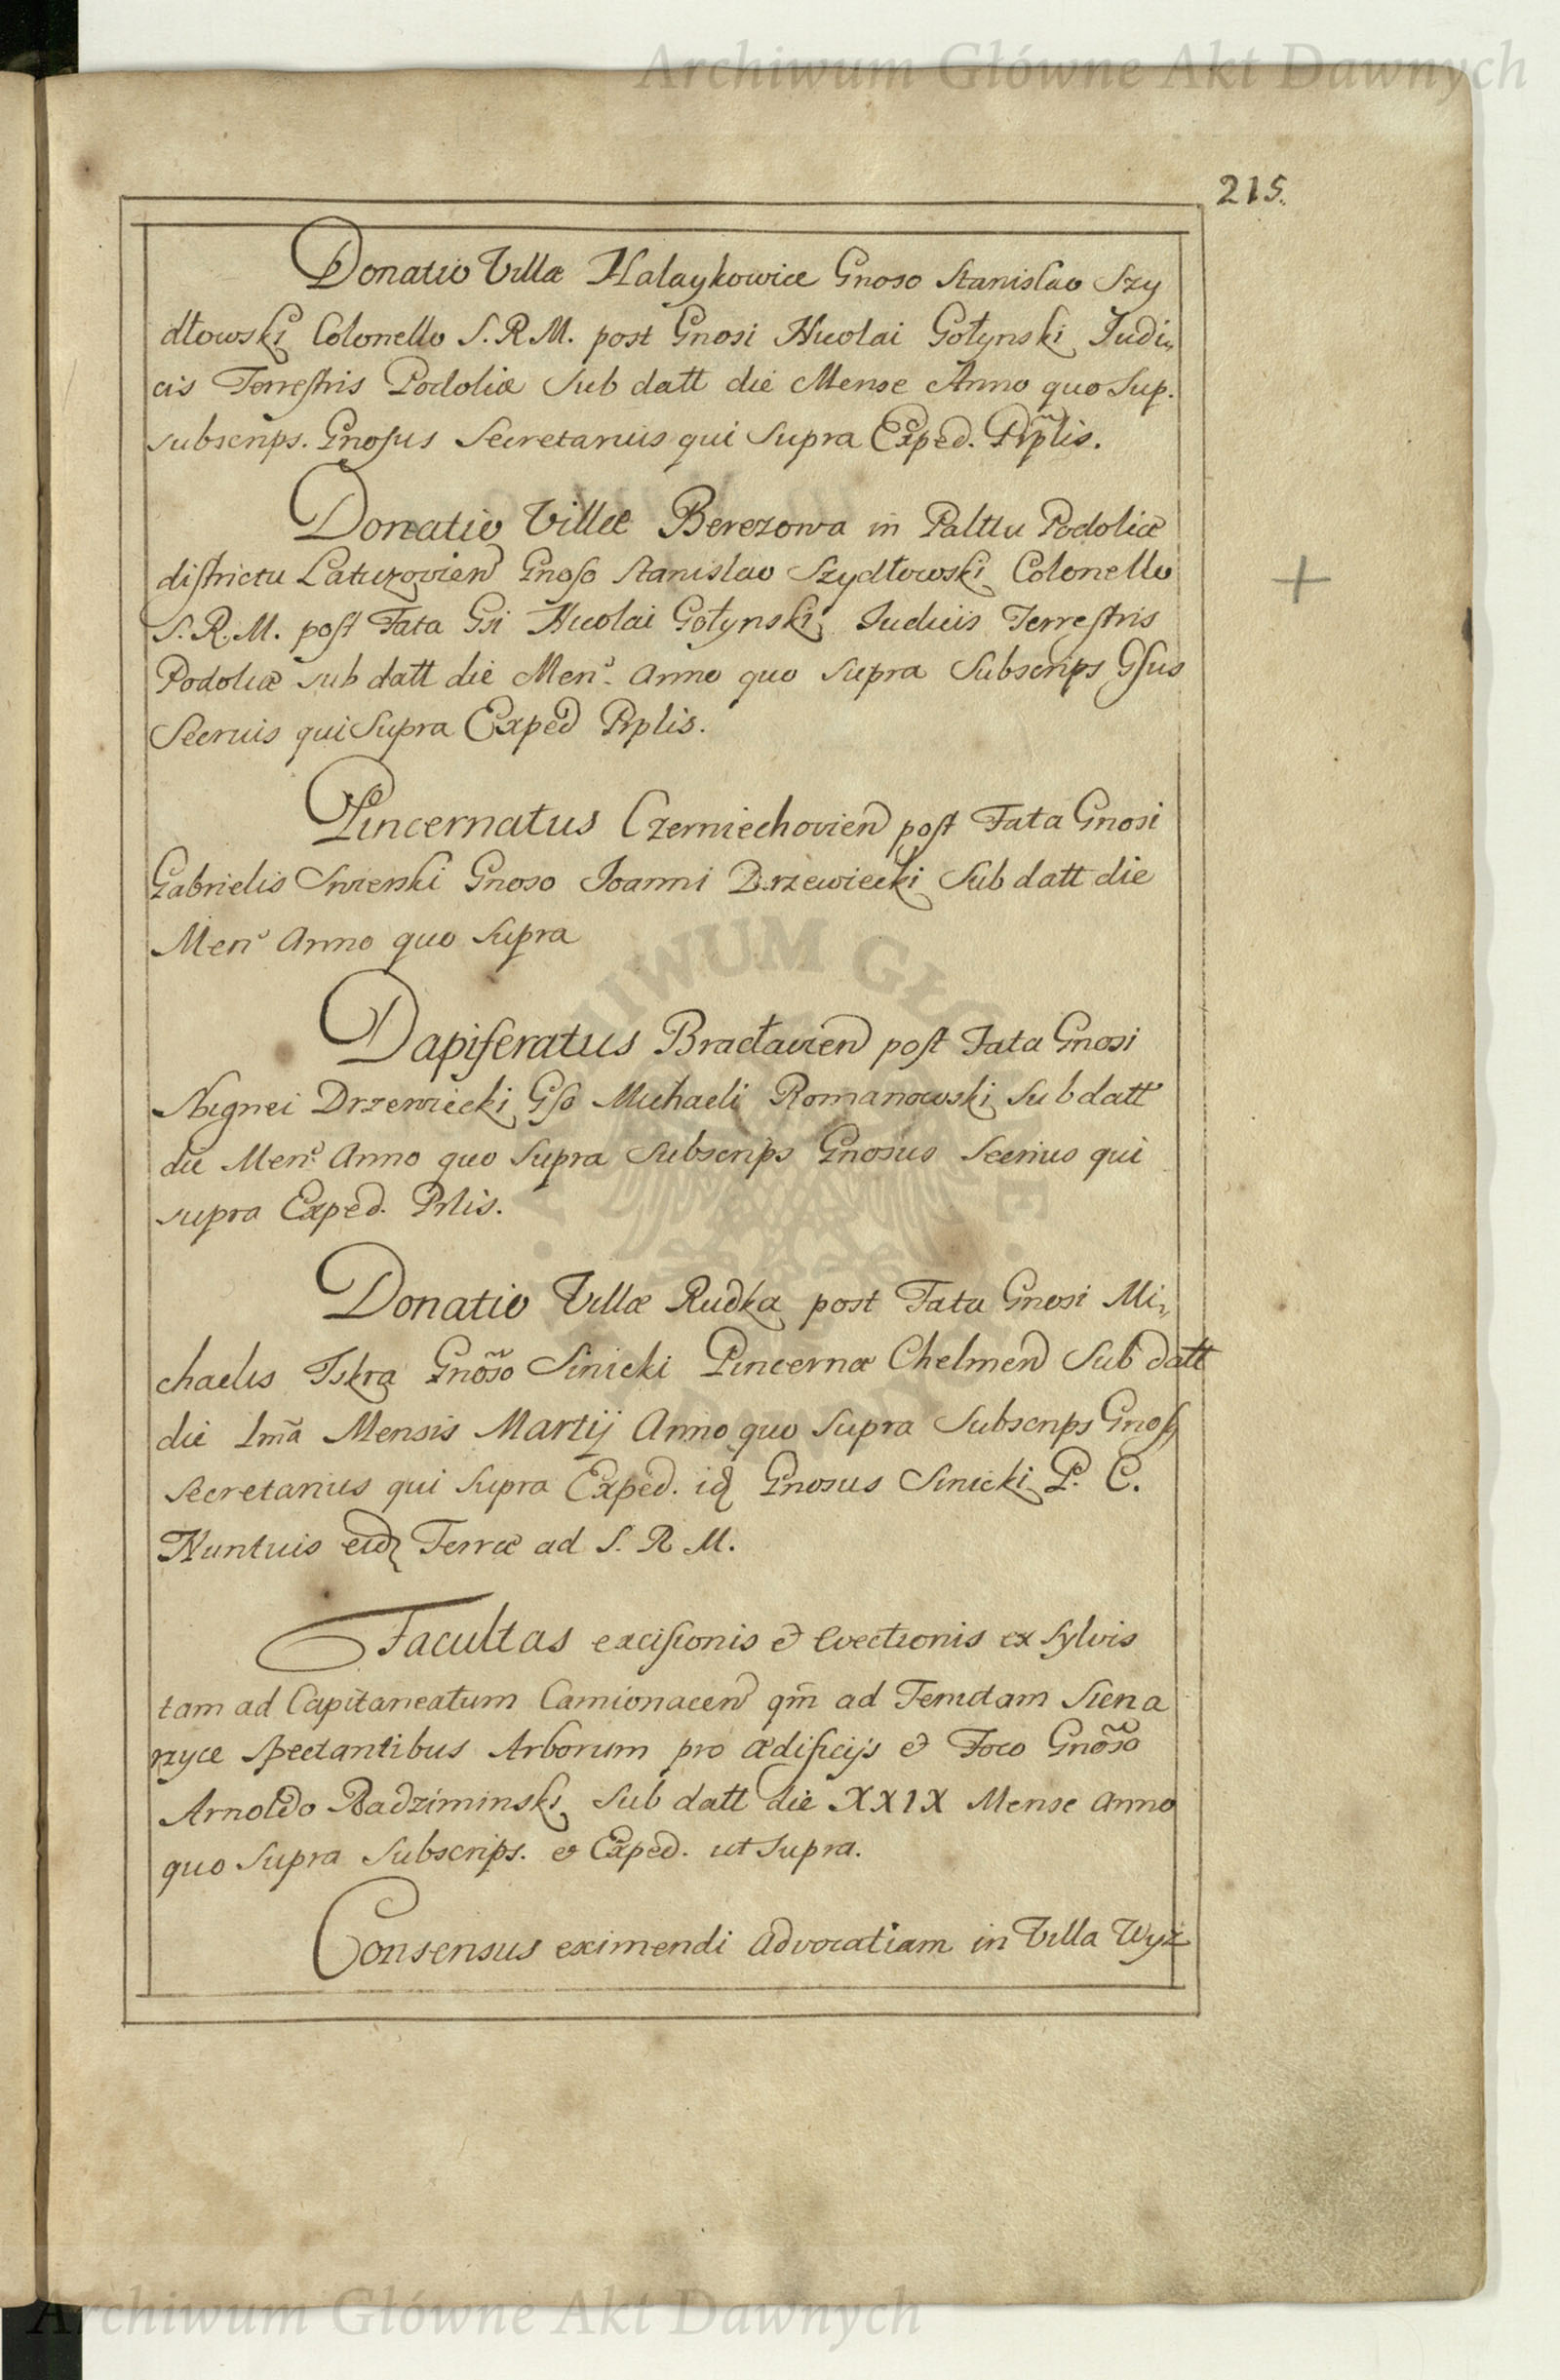 Archiwum Główne Akt Dawnych
215.
Donatio Villæ Halaykowice Gnoso Stanislao Szy
dłowski Colonello S. R. M. post Gnosi Nicolai Gołynski Judi„
cis Terrestris Podoliæ Sub datt die Mense Anno quo Sup.
subscrips. Gnosus Secretarius qui Supra Exped. Prplis.
Donatio Villæ Berezowa in Palttu Podoliæ
districtu Latyczovien Gnoso Stanislao Szydłowski Colonello
S. R. M. post Fata Gsi Nicolai Gołynski Judicis Terrestris
Podoliæ sub datt die Mens. Anno quo Supra Subscrips Gsus
Secrius qui Supra Exped Prplis.
Pincernatus Czerniechovien post Fata Gnosi
Gabrielis Swierski Gnoso Joanni Drzewiecki Sub datt die
Mens Anno quo Supra
Dapiferatus Bracłavien post Fata Gnosi
Drzewiecki Gso Michaeli Romanowski Sub datt
die Mens. Anno quo Supra Subscrips Gnosus Secrius qui
supra Exped. Prlis.
Donatio Villæ Rudka post Fata Gnosi Mi„
chaelis Iskra Gnoso Sinicki Pincernæ Chelmen Sub datt
die 1mã Mensis Martij Anno quo Supra Subscrips Gnoss
Secretarius qui Supra Exped. Gnosus Sinicki P. C.
Nuntius Terræ ad S. R M.
Facultas excisionis et Evectionis ex sylvis
tam ad Capitaneatum Camionacen qm̃ ad Tenutam Siena
rzyce spectantibus Arborum pro ædificijs et Foco Gnoso
Arnoldo Radziminski Sub datt die XXIX Mense Anno
quo Supra Subscrips. et Exped. ut Supra.
Consensus eximendi Advocatiam in Villa Wyż
Archiwum Główne Akt Dawnych